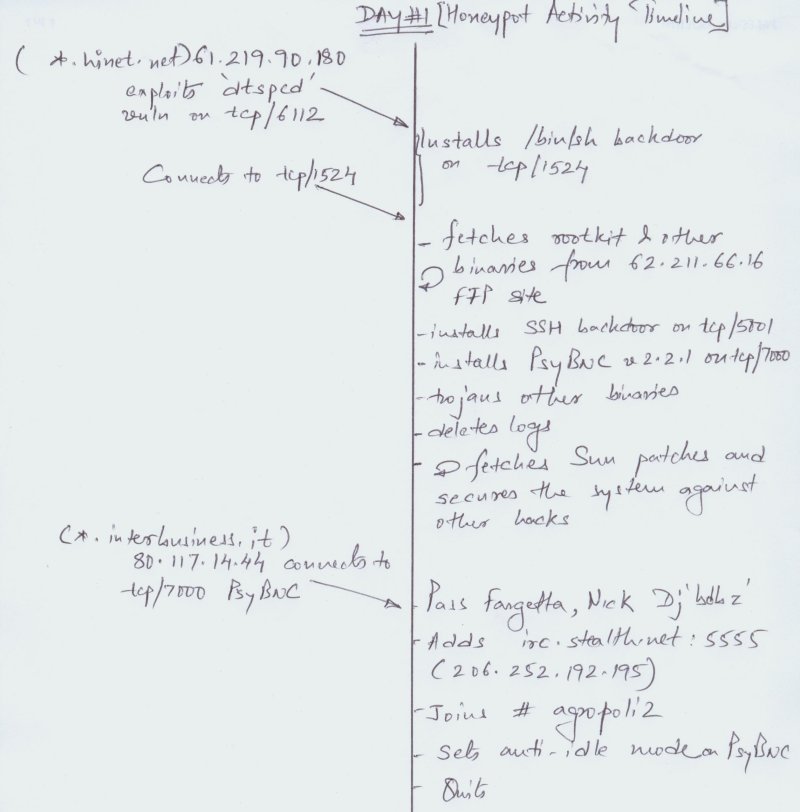 DAY #1 [Honeypot Activity Timeline]
( *.hinet.net) 61.219.90.180
exploits 'dtspcd'
vuln on tcp/6112
Installs /bin/sh backdoor
on tcp/1524
Connects to tcp/1524
- fetches rootkit & other
binaries from 62.211.66.16
FTP site
- installs SSH backdoor on tcp/5001
- installs PsyBNC v 2.2.1 on tcp/7000
- trojans other binaries
- deletes logs
- fetches Sun patches and
secures the system against
other hacks
(*.interbusiness.it)
80.117.14.44 connects to
tcp/7000 PsyBNC
- Pass fargetta, Nick Dj'bobz'
- Adds irc.stealth.net:5555
(206.252.192.195)
- Joins # agropoli2
- Sets anti-idle mode on PsyBNC
- Quits